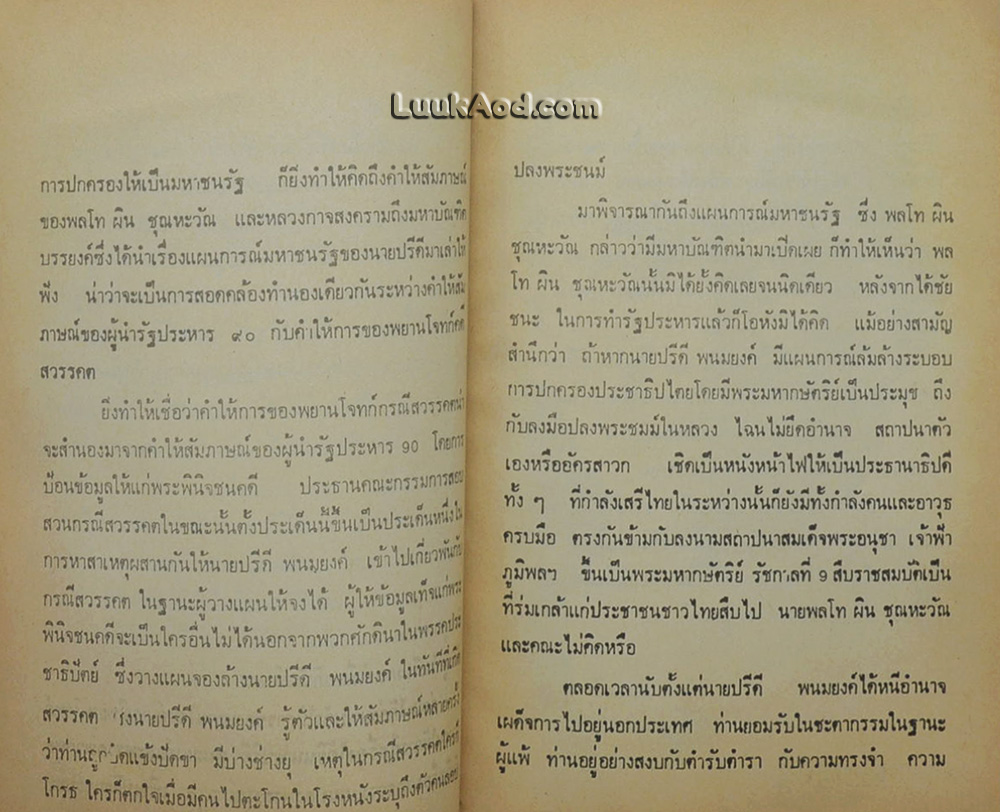 LuukAod.com
การปกครองให้เป็นมหาชนรัฐ ก็ยิ่งทำให้คิดถึงคำให้สัมภาษณ์
ของพลโท ผิน ชุณหะวัณ และหลวงกาจสงครามถึงมหาบัณฑิต
บรรยงค์ซึ่งได้นำเรื่องแผนการณ์มหาชนรัฐของนายปรีดีมาเล่าให้
ฟัง น่าว่าจะเป็นการสอดคล้องทำนองเดียวกันระหว่างคำให้สัม
ภาษณ์ของผู้นำรัฐประหาร ๙๐ กับคำให้การของพยานโจทก์คดี
สวรรคต
ยิ่งทำให้เชื่อว่าคำให้การของพยานโจทก์กรณีสวรรคตน่า
จะสำนองมาจากคำให้สัมภาษณ์ของผู้นำรัฐประหาร 90 โดยการ
ป้อนข้อมูลให้แก่พระพินิจชนคดี ประธานคณะกรรมการสอบ
สวนกรณีสวรรคตในขณะนั้นตั้งประเด็นนี้ขึ้นเป็นประเด็นหนึ่งใน
การหาสาเหตุผสานกันให้นายปรีดี พนมยงค์ เข้าไปเกี่ยวพันกับ
กรณีสวรรคต ในฐานะผู้วางแผนให้จงได้ ผู้ให้ข้อมูลเท็จแก่พระ
พินิจชนคดีจะเป็นใครอื่นไม่ได้นอกจากพวกศักดินาในพรรคประ
ชาธิปัตย์ ซึ่งวางแผนจองล้างนายปรีดี พนมยงค์ ในทันทีที่เกิด
สวรรคต นายปรีดี พนมยงค์ รู้ตัวและให้สัมภาษณ์หลายครั้ง
ว่าท่านถูก แช่งปัดขา มีบ่างช่างยุ เหตุในกรณีสวรรคตใครก็
โกรธ ใครก็ตกใจเมื่อมีคนไปตะโกนในโรงหนังระบุถึงตัวคนลอบ
ปลงพระชนม์
มาพิจารณากันถึงแผนการณ์มหาชนรัฐ ซึ่ง พลโท ผิน
ชุณหะวัณ กล่าวว่ามีมหาบัณฑิตนำมาเปิดเผย ก็ทำให้เห็นว่า พล
โท ผิน ชุณหะวัณนั้นมิได้ยั้งคิดเลยจนนิดเดียว หลังจากได้ชัย
ชนะ ในการทำรัฐประหารแล้วก็โอหังมิได้คิด แม้อย่างสามัญ
สำนึกว่า ถ้าหากนายปรีดี พนมยงค์ มีแผนการณ์ล้มล้างระบอบ
การปกครองประชาธิปไตยโดยมีพระมหากษัตริย์เป็นประมุข ถึง
กับลงมือปลงพระชมม์ในหลวง ไฉนไม่ยึดอำนาจ สถาปนาตัว
เองหรืออัครสาวก เชิดเป็นหนังหน้าไฟให้เป็นประธานาธิปดี
ทั้ง ๆ ที่กำลังเสรีไทยในระหว่างนั้นก็ยังมีทั้งกำลังคนและอาวุธ
ครบมือ ตรงกันข้ามกับลงนามสถาปนาสมเด็จพระอนุชา เจ้าฟ้า
ภูมิพลฯ ขึ้นเป็นพระมหากษัตริย์ รัชกาลที่ 9 สืบราชสมบัติเป็น
ที่ร่มเกล้าแก่ประชาชนชาวไทยสืบไป นายพลโท ผิน ชุณหะวัณ
และคณะไม่คิดหรือ
ตลอดเวลานับตั้งแต่นายปรีดี พนมยงค์ได้หนีอำนาจ
เผด็จการไปอยู่นอกประเทศ ท่านยอมรับในชะตากรรมในฐานะ
ผู้แพ้ ท่านอยู่อย่างสงบกับตำรับตำรา กับความทรงจำ ความ